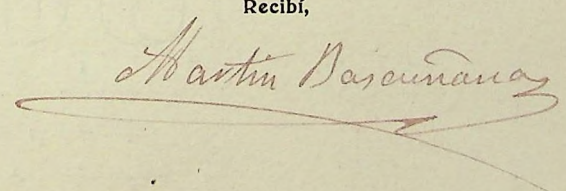 Recibí,
Martín Bascuñana